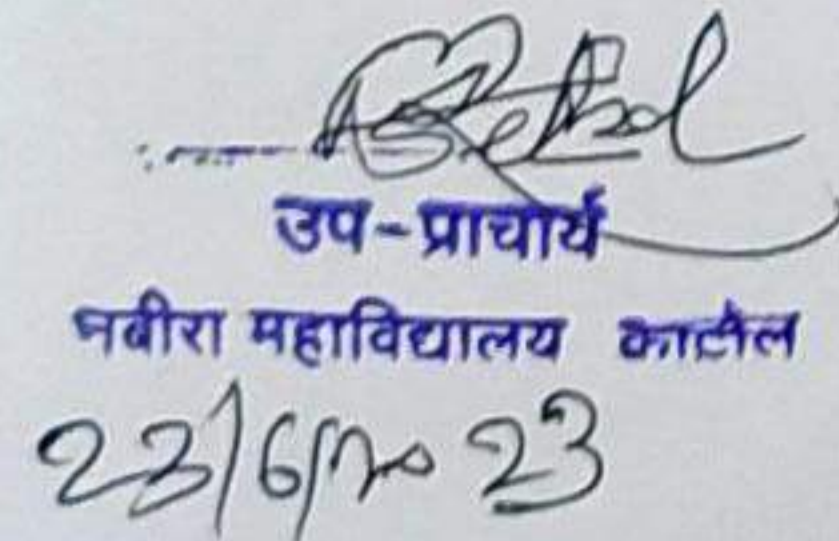 उप-प्राचार्य
नबीरा महाविद्यालय काटोल
23/6/2023